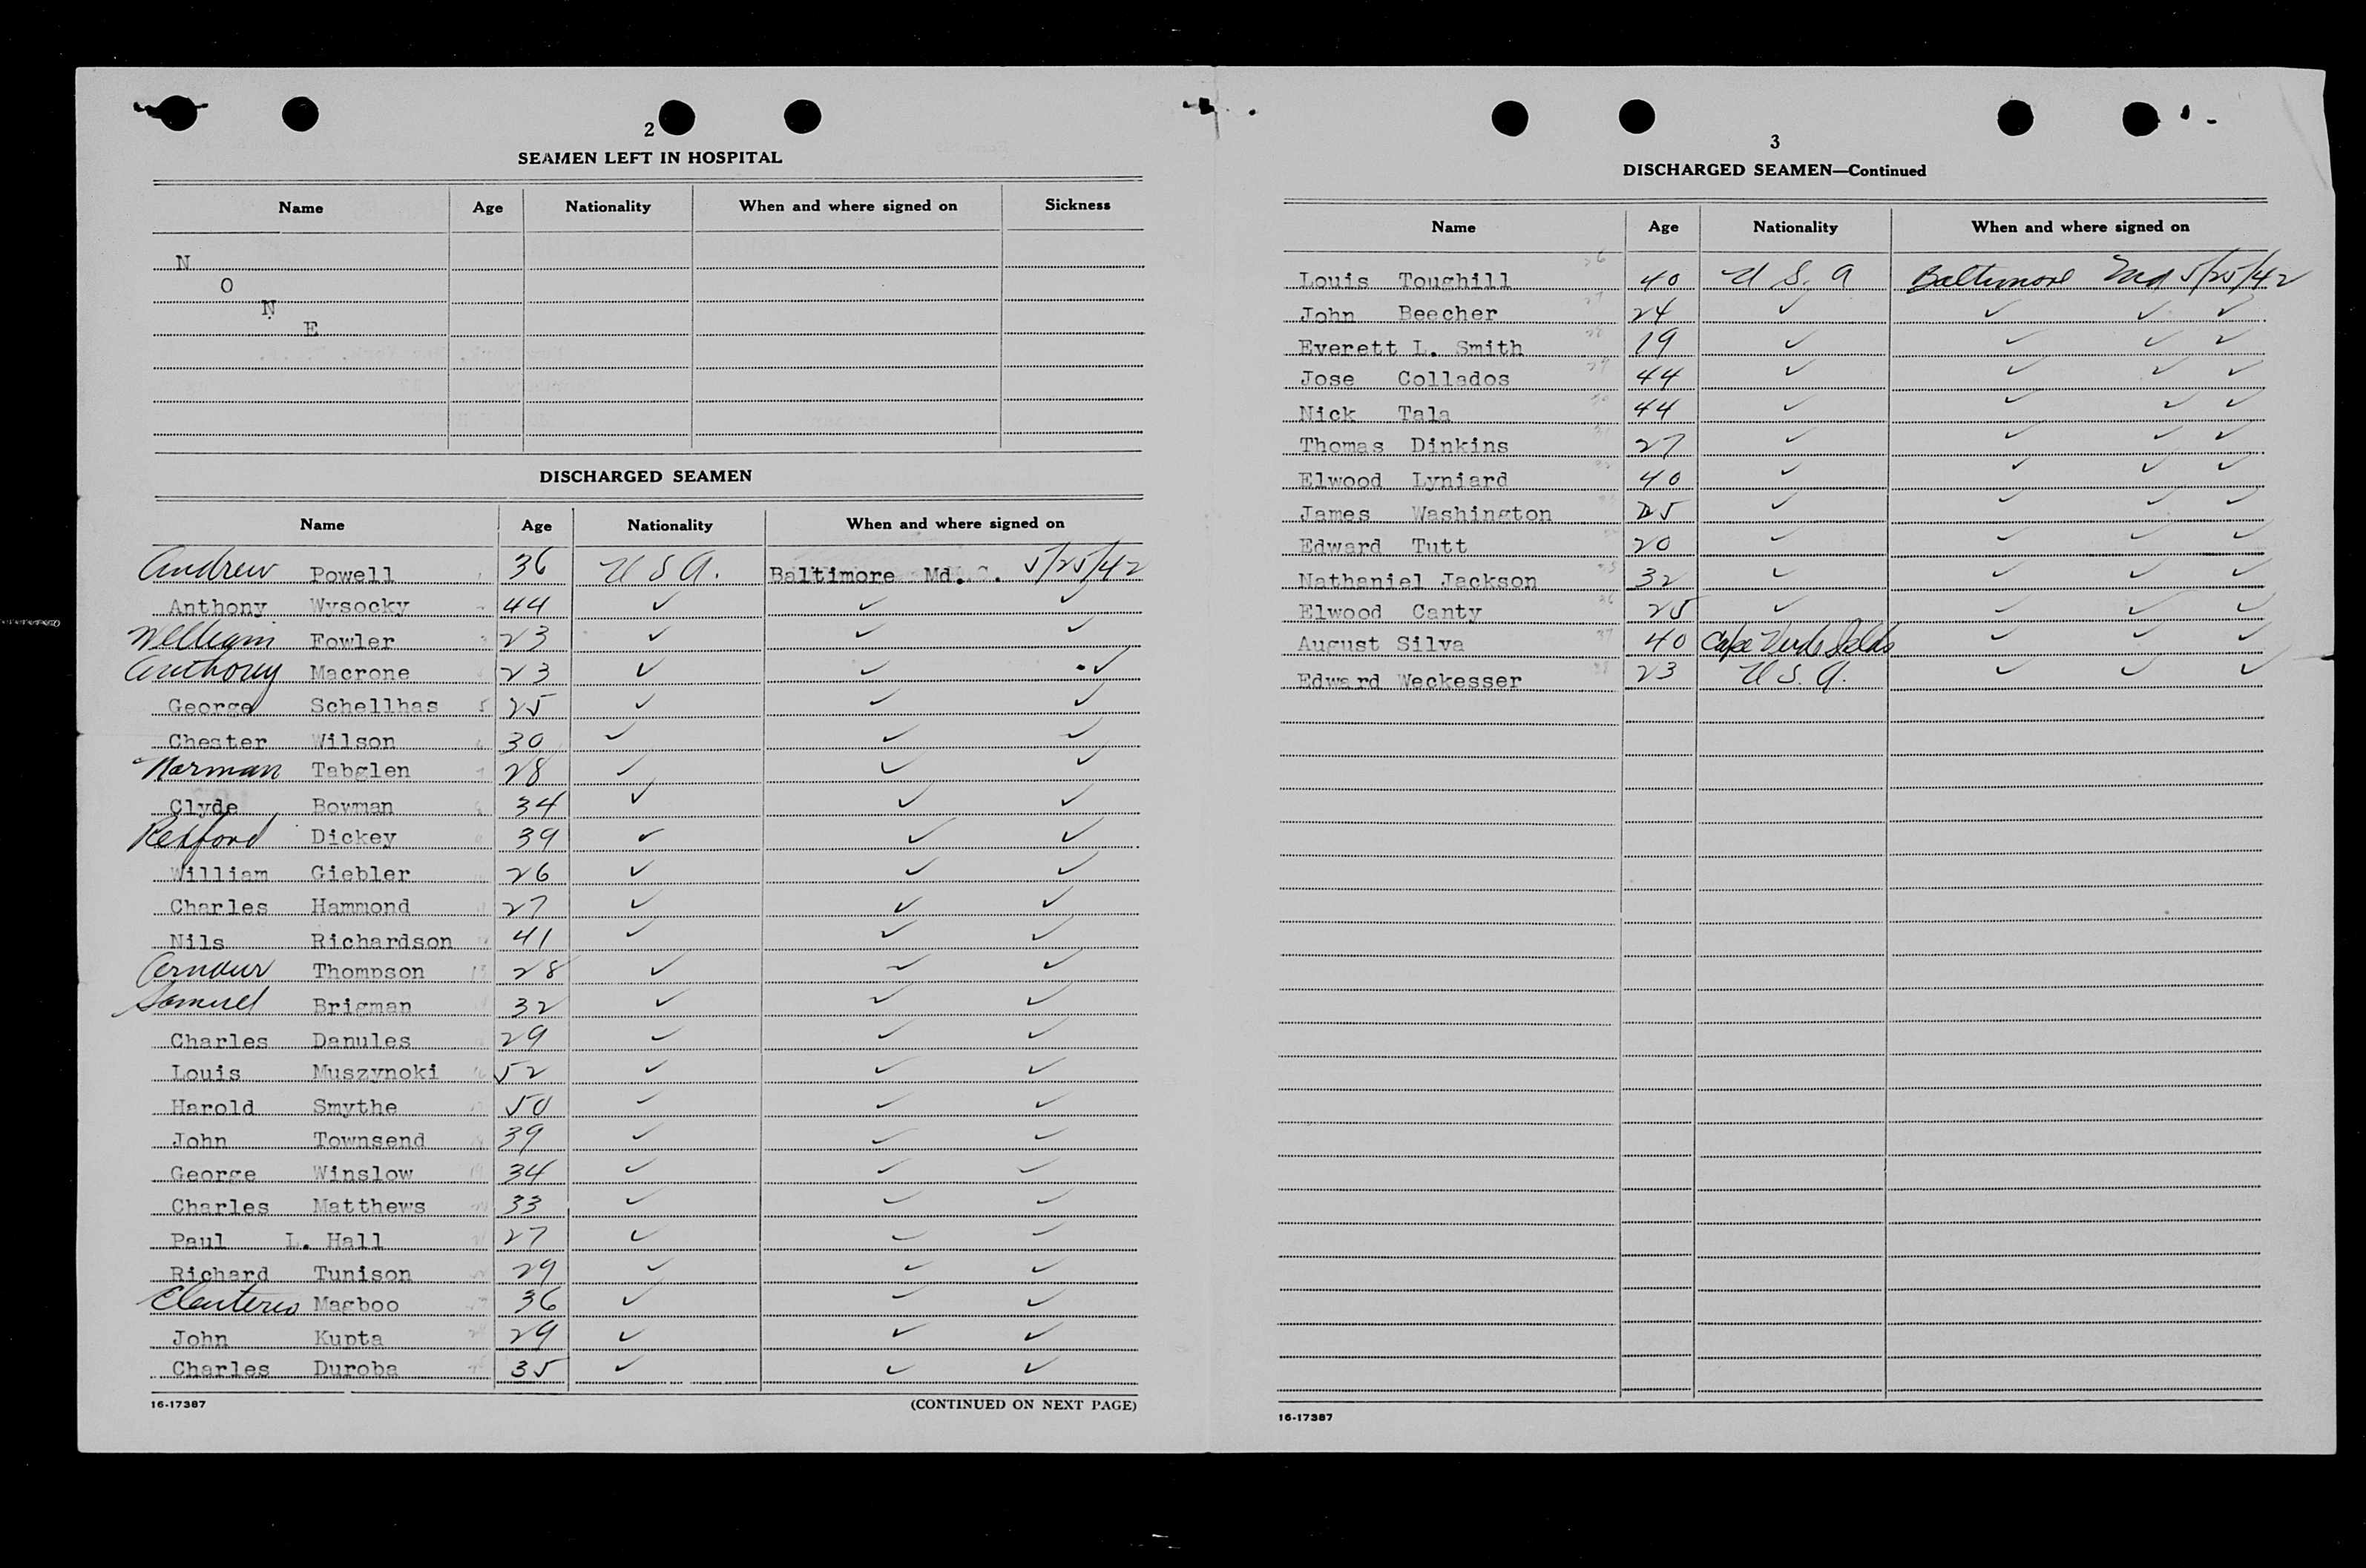 2
SEAMEN LEFT IN HOSPITAL
Name Age Nationality When and where signed on Sickness
N
O
N
E
DISCHARGED SEAMEN
Name Age Nationality When and where signed on
Andrew Powell 36 U S A. Baltimore Md. 5/25/42
Anthony Wysocky 44 ✓ ✓ ✓
William Fowler 23 ✓ ✓ ✓
Anthony Macrone 23 ✓ ✓ ✓
George Schellhas 5 25 ✓ ✓ ✓
Chester Wilson 30 ✓ ✓ ✓
Norman Tabglen 28 ✓ ✓ ✓
Clyde Bowman 34 ✓ ✓ ✓
Rexford Dickey 39 ✓ ✓ ✓
William Giebler 26 ✓ ✓ ✓
Charles Hammond 27 ✓ ✓ ✓
Nils Richardson 41 ✓ ✓ ✓
Thompson 13 28 ✓ ✓ ✓
Samuel Brigman 32 ✓ ✓ ✓
Charles Danules 29 ✓ ✓ ✓
Louis Muszynoki 52 ✓ ✓ ✓
Harold Smythe 50 ✓ ✓ ✓
John Townsend 39 ✓ ✓ ✓
George Winslow 34 ✓ ✓ ✓
Charles Matthews 33 ✓ ✓ ✓
Paul L. Hall 27 ✓ ✓ ✓
Richard Tunison 29 ✓ ✓ ✓
Eleuterio Magboo 36 ✓ ✓ ✓
John Kupta 29 ✓ ✓ ✓
Charles Duroba 35 ✓ ✓ ✓
16-17387 (CONTINUED ON NEXT PAGE)
3
DISCHARGED SEAMEN—Continued
Name Age Nationality When and where signed on
Louis Toughill 26 40 U S. A Baltimore Md 5/25/42
John Beecher 27 24 ✓ ✓ ✓ ✓
Everett L. Smith 28 19 ✓ ✓ ✓ ✓
Jose Collados 29 44 ✓ ✓ ✓ ✓
Nick Tala 30 44 ✓ ✓ ✓ ✓
Thomas Dinkins 31 27 ✓ ✓ ✓ ✓
Elwood Lyniard 40 ✓ ✓ ✓ ✓
James Washington 25 ✓ ✓ ✓ ✓
Edward Tutt 20 ✓ ✓ ✓ ✓
Nathaniel Jackson 35 32 ✓ ✓ ✓ ✓
Elwood Canty 36 25 ✓ ✓ ✓ ✓
August Silva 37 40 Cape Verde Islds ✓ ✓ ✓
Edward Weckesser 38 23 U S. A. ✓ ✓ ✓
16-17387